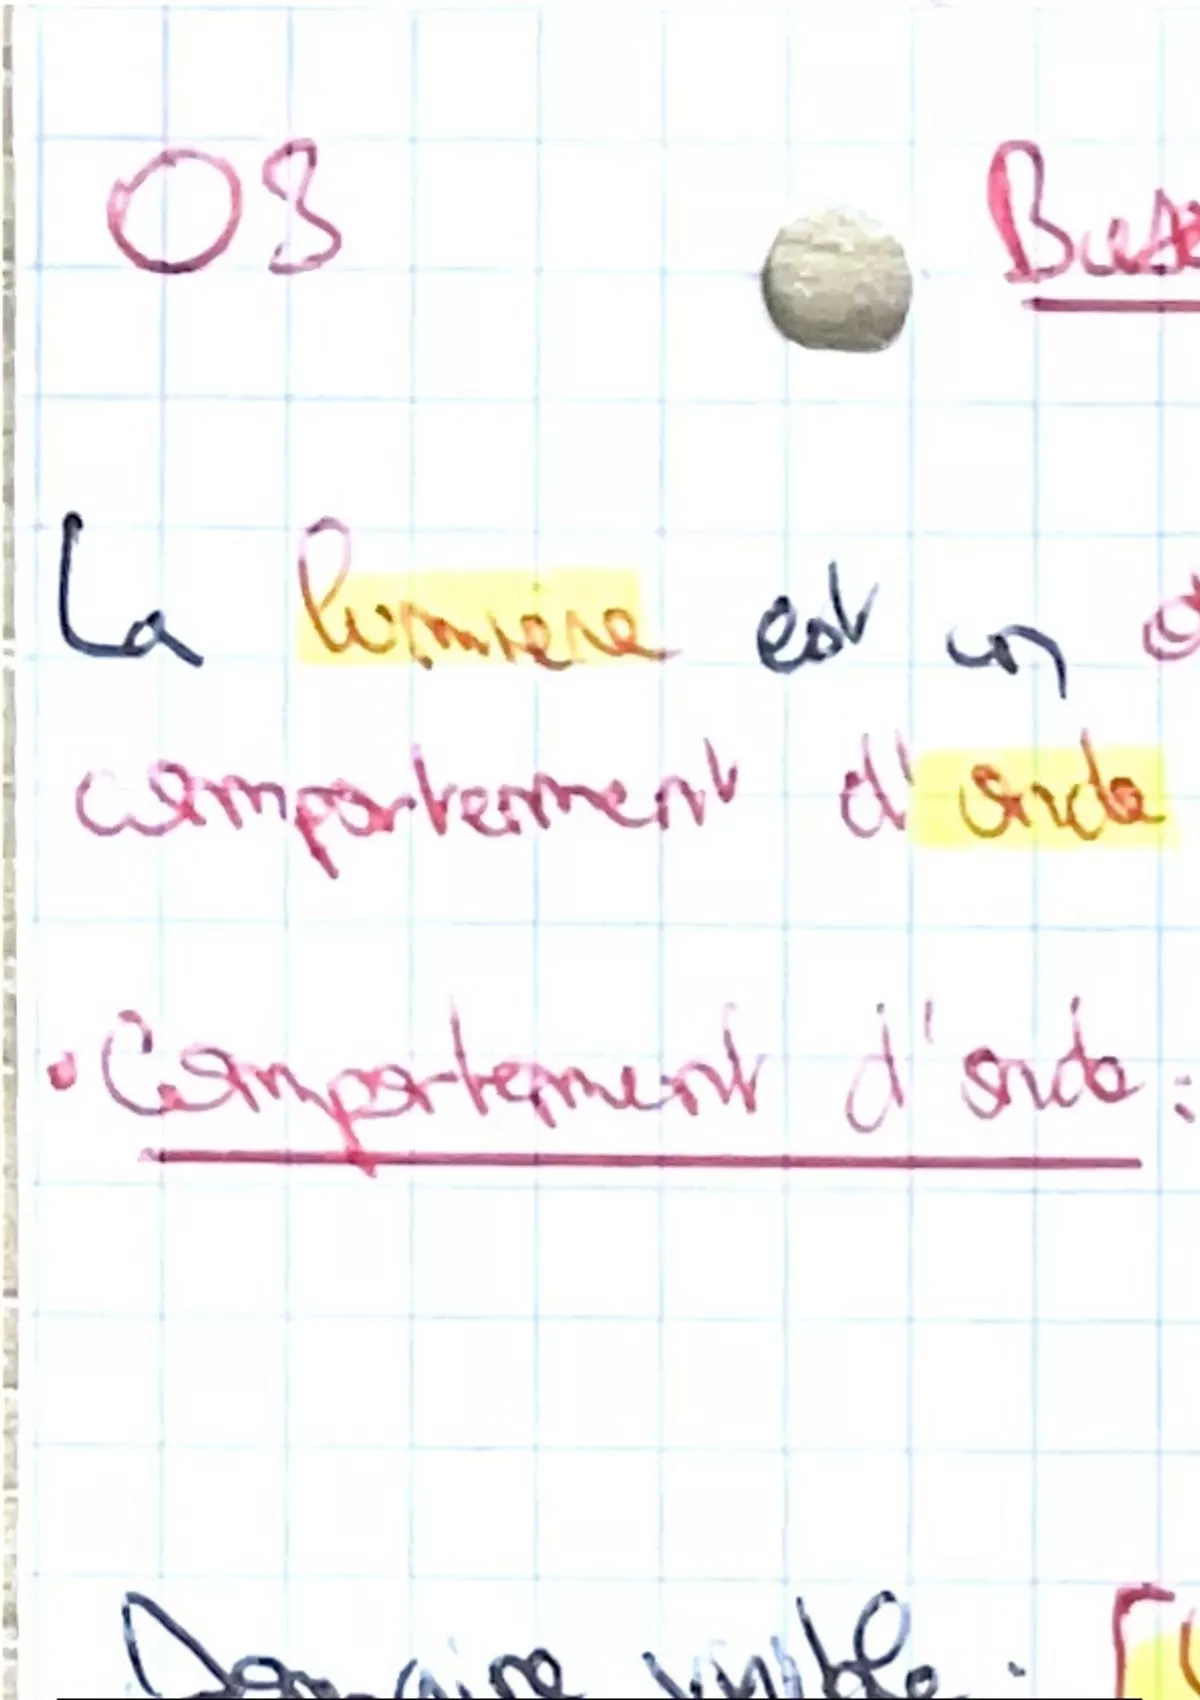 03
La lumière est un
comportement d'onde
• Comportement d'onde :
Domaine visible : [